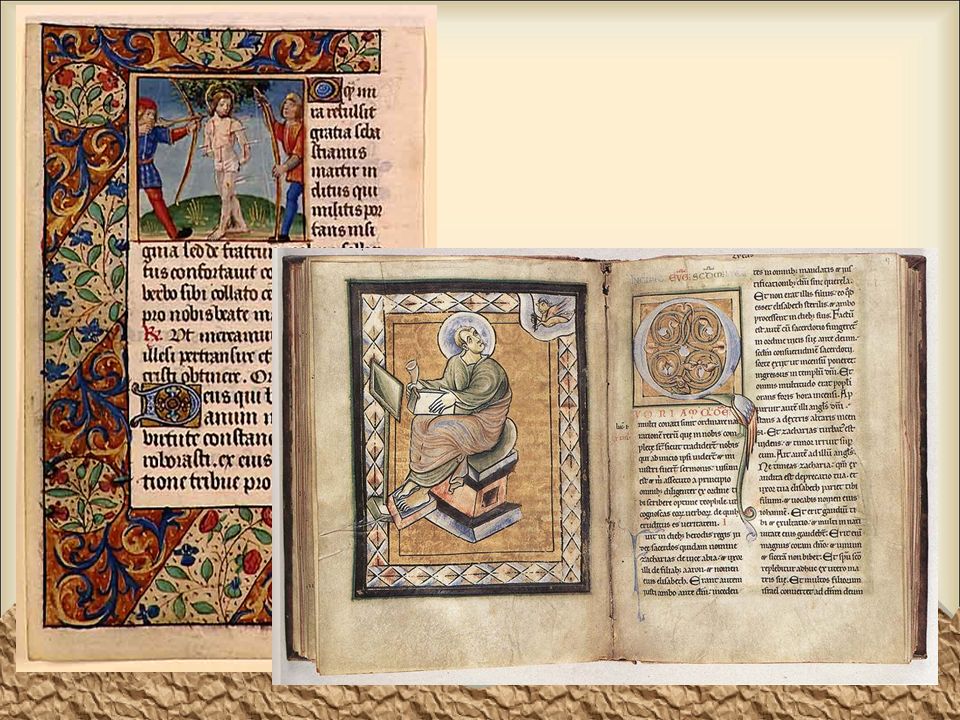 O qȝ mi
ra refulsit
gratia seba
stianus
martir in
ditus qui
militis por
tans insi
gnia sed de fratrum
tus confortauit co
verbo sibi collato ce
pro nobis beate ma
Ut mereamur
illesi pertransire et
cristi obtinere. Or
Deus qui b
anum m
virtute constanc
roborasti. ex eius
tione tribue pro
LUCAS
EVG
Q
UM
multi conati sunt ordinare nar
rationē rerū que in nobis com
plete sṫ sicut tradiderunt nobis
qui ab inicio ipsi uiderūt & mi
nistri fuerunt sermonis: uisum
est & m̄ assecuto a principio
omnib; diligenter ex ordine ti
bi scribere optime theophile. ut
cognoscas eorū uerborū de quib;
eruditus es ueritatem.
uit in dieb; herodis regis iu
dee sacerdos quidam nomine
Zacharias de uice abia. & uxor
illi de filiab; aaron. & nomen
eius elisabeth. Erant autem
iusti ambo ante dm̄. inceden
tes in omnib; mandatis & ius
tificationib; dn̄i sine querela.
Et non erat illis filius. eo qđ
esset elisabeth sterilis. & ambo
processissent in dieb; suis. Factū
est autē cū sacerdotio fungeret̄
in ordine uicis sue ante deum.
sedm̄ consuetudinem sacerdotii.
sorte exiit ut incensū poneret
ingressus in templū dn̄i. Et
omnis multitudo erat popli
orans foris hora incensi. Ap
paruit autē illi angls dn̄i.
stans a dextris altaris incen
si. Et zacharias turbat̄ est
uidens. & timor irruit sup̄
eum. Ait autē ad illū angls.
Ne timeas zacharia. qm̄ ex
audita est deprecatio tua. et
uxor tua elisabeth pariet tibi
filium. & uocabis nomen eius
iohannē. Et erit gaudiū ti
bi & exultatio. & multi in nati
uitate eius gaudebt̄. Erit enī
magnus coram dn̄o. & uinum
& siceram non bibet. Et spū sc̄o
replebitur adhuc ex utero ma
tris sue. Et multos filiorum
israel conuertet ad dn̄m deum